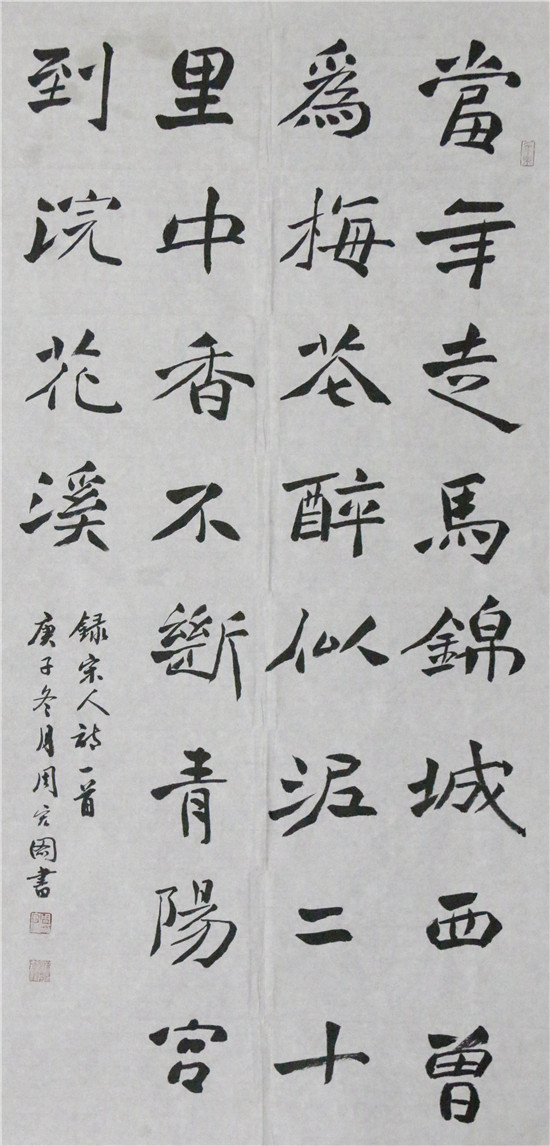 當年走馬錦城西曾
爲梅花醉似泥二十
里中香不斷青陽宮
到浣花溪
録宋人詩一首
庚子冬月周書